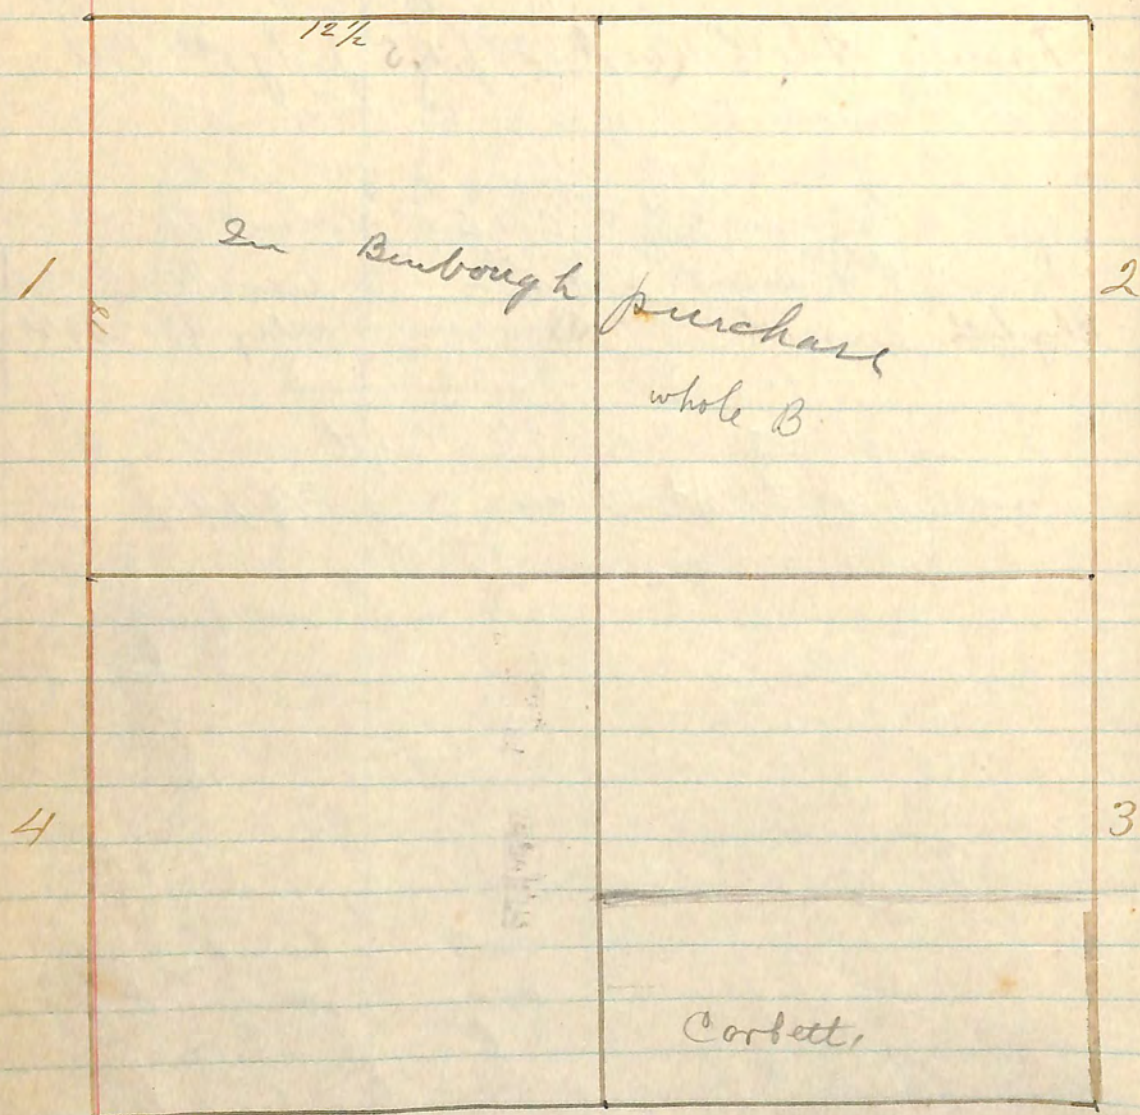 12½
1
2
In Benbough purchase
whole B
4
3
Corbett.